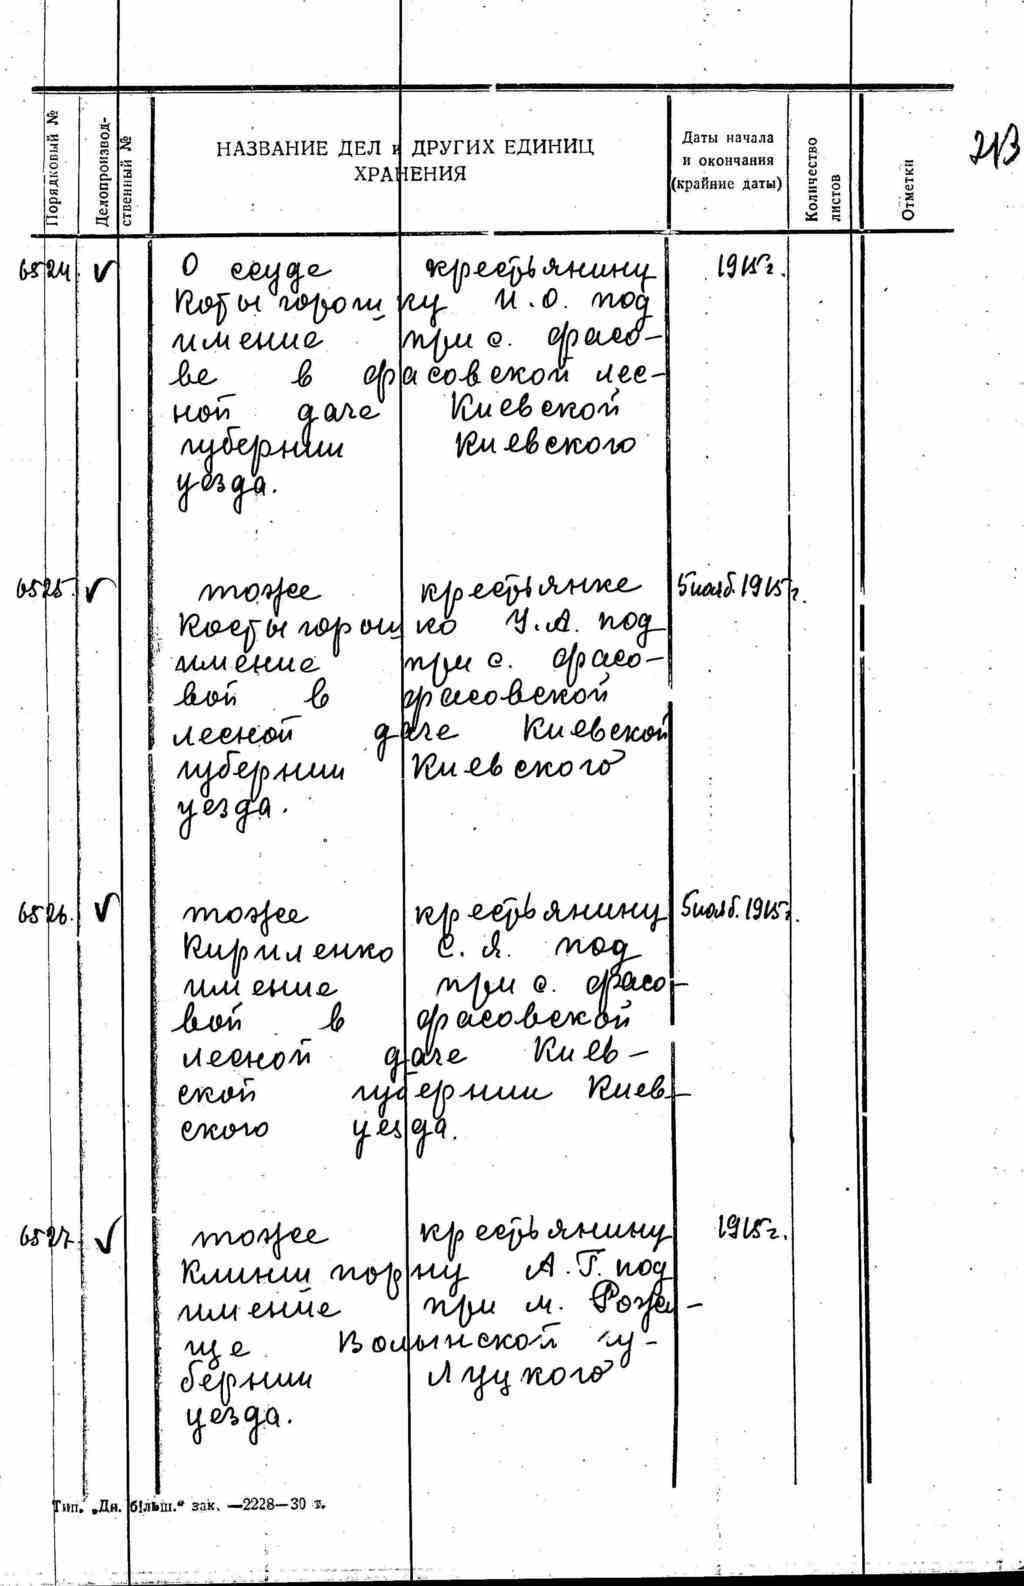 213
Порядковый №
Делопроизвод-
ственный №
НАЗВАНИЕ ДЕЛ и ДРУГИХ ЕДИНИЦ
ХРАНЕНИЯ
Даты начала
и окончания
(крайние даты)
Количество
листов
Отметки
6524. V О ссуде крестьянину 1915г.
Котыгорошку И.О. под
имение при с. Фасо-
ве в Фасовской лес-
ной даче Киевской
губернии Киевского
уезда.
6525. V тоже крестьянке 5 нояб. 1915г.
Костыгорошко У.А. под
имение при с. Фасо-
вой в Фасовской
лесной даче Киевской
губернии Киевского
уезда.
6526. V тоже крестьянину 5 нояб. 1915г.
Кириленко С.Я. под
имение при с. Фасо-
вой в Фасовской
лесной даче Киев-
ской губернии Киев-
ского уезда.
6527. V тоже крестьянину 1915г.
А.Г. под
имение при м. Рожи-
ще Волынской гу-
бернии Луцкого
уезда.
Тип. „Дн. більш." зак. —2228—30 т.